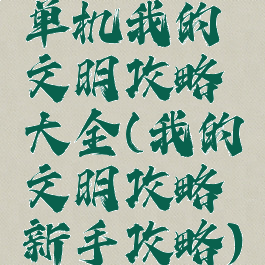 单机我的
文明攻略
大全(我的
文明攻略
新手攻略)